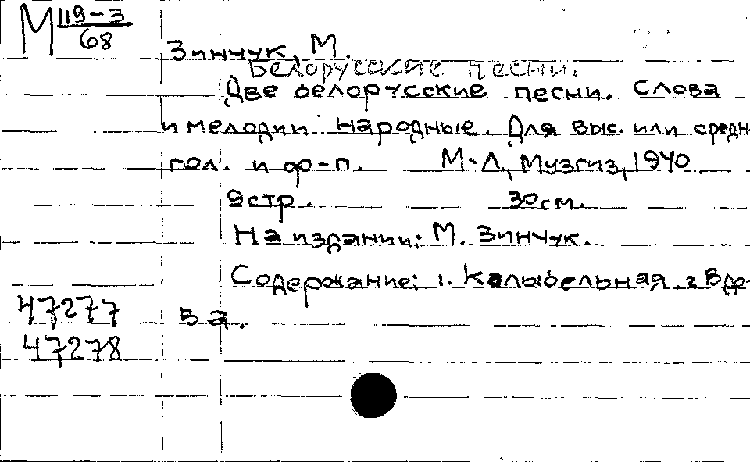 М 119-3
68
Зинчук, М.
Белорусские песни.
Две белорусские песни. Слова
и мелодии народные. Для выс. или средн
гол. и ф-п. М-Л, Музгиз, 1940
9стр. 30см.
На издании: М. Зинчук.
Содержание: 1. Калыбельная 2 Вде
47277 5 а.
47278